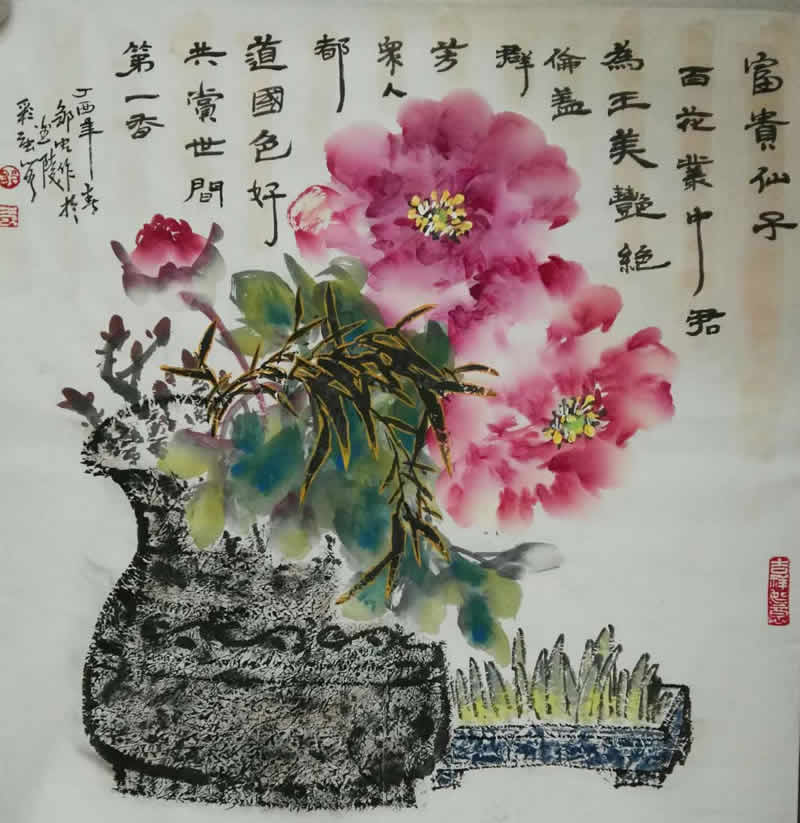 富貴仙子
百花業中君
為王美艷絕
倫蓋
群
芳
衆人
都
道國色好
共賞世間
第一香
丁酉年春
作於
吉祥如意